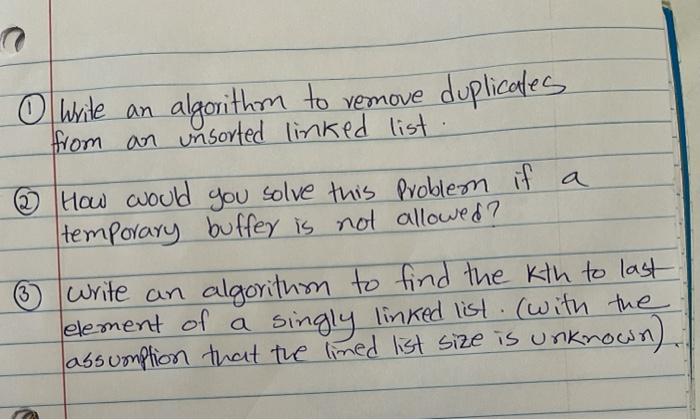 ① Write an algorithm to remove duplicates
from an unsorted linked list.
② How would you solve this problem if a
temporary buffer is not allowed?
③ Write an algorithm to find the Kth to last
element of a singly linked list. (with the
assumption that the lined list size is unknown).